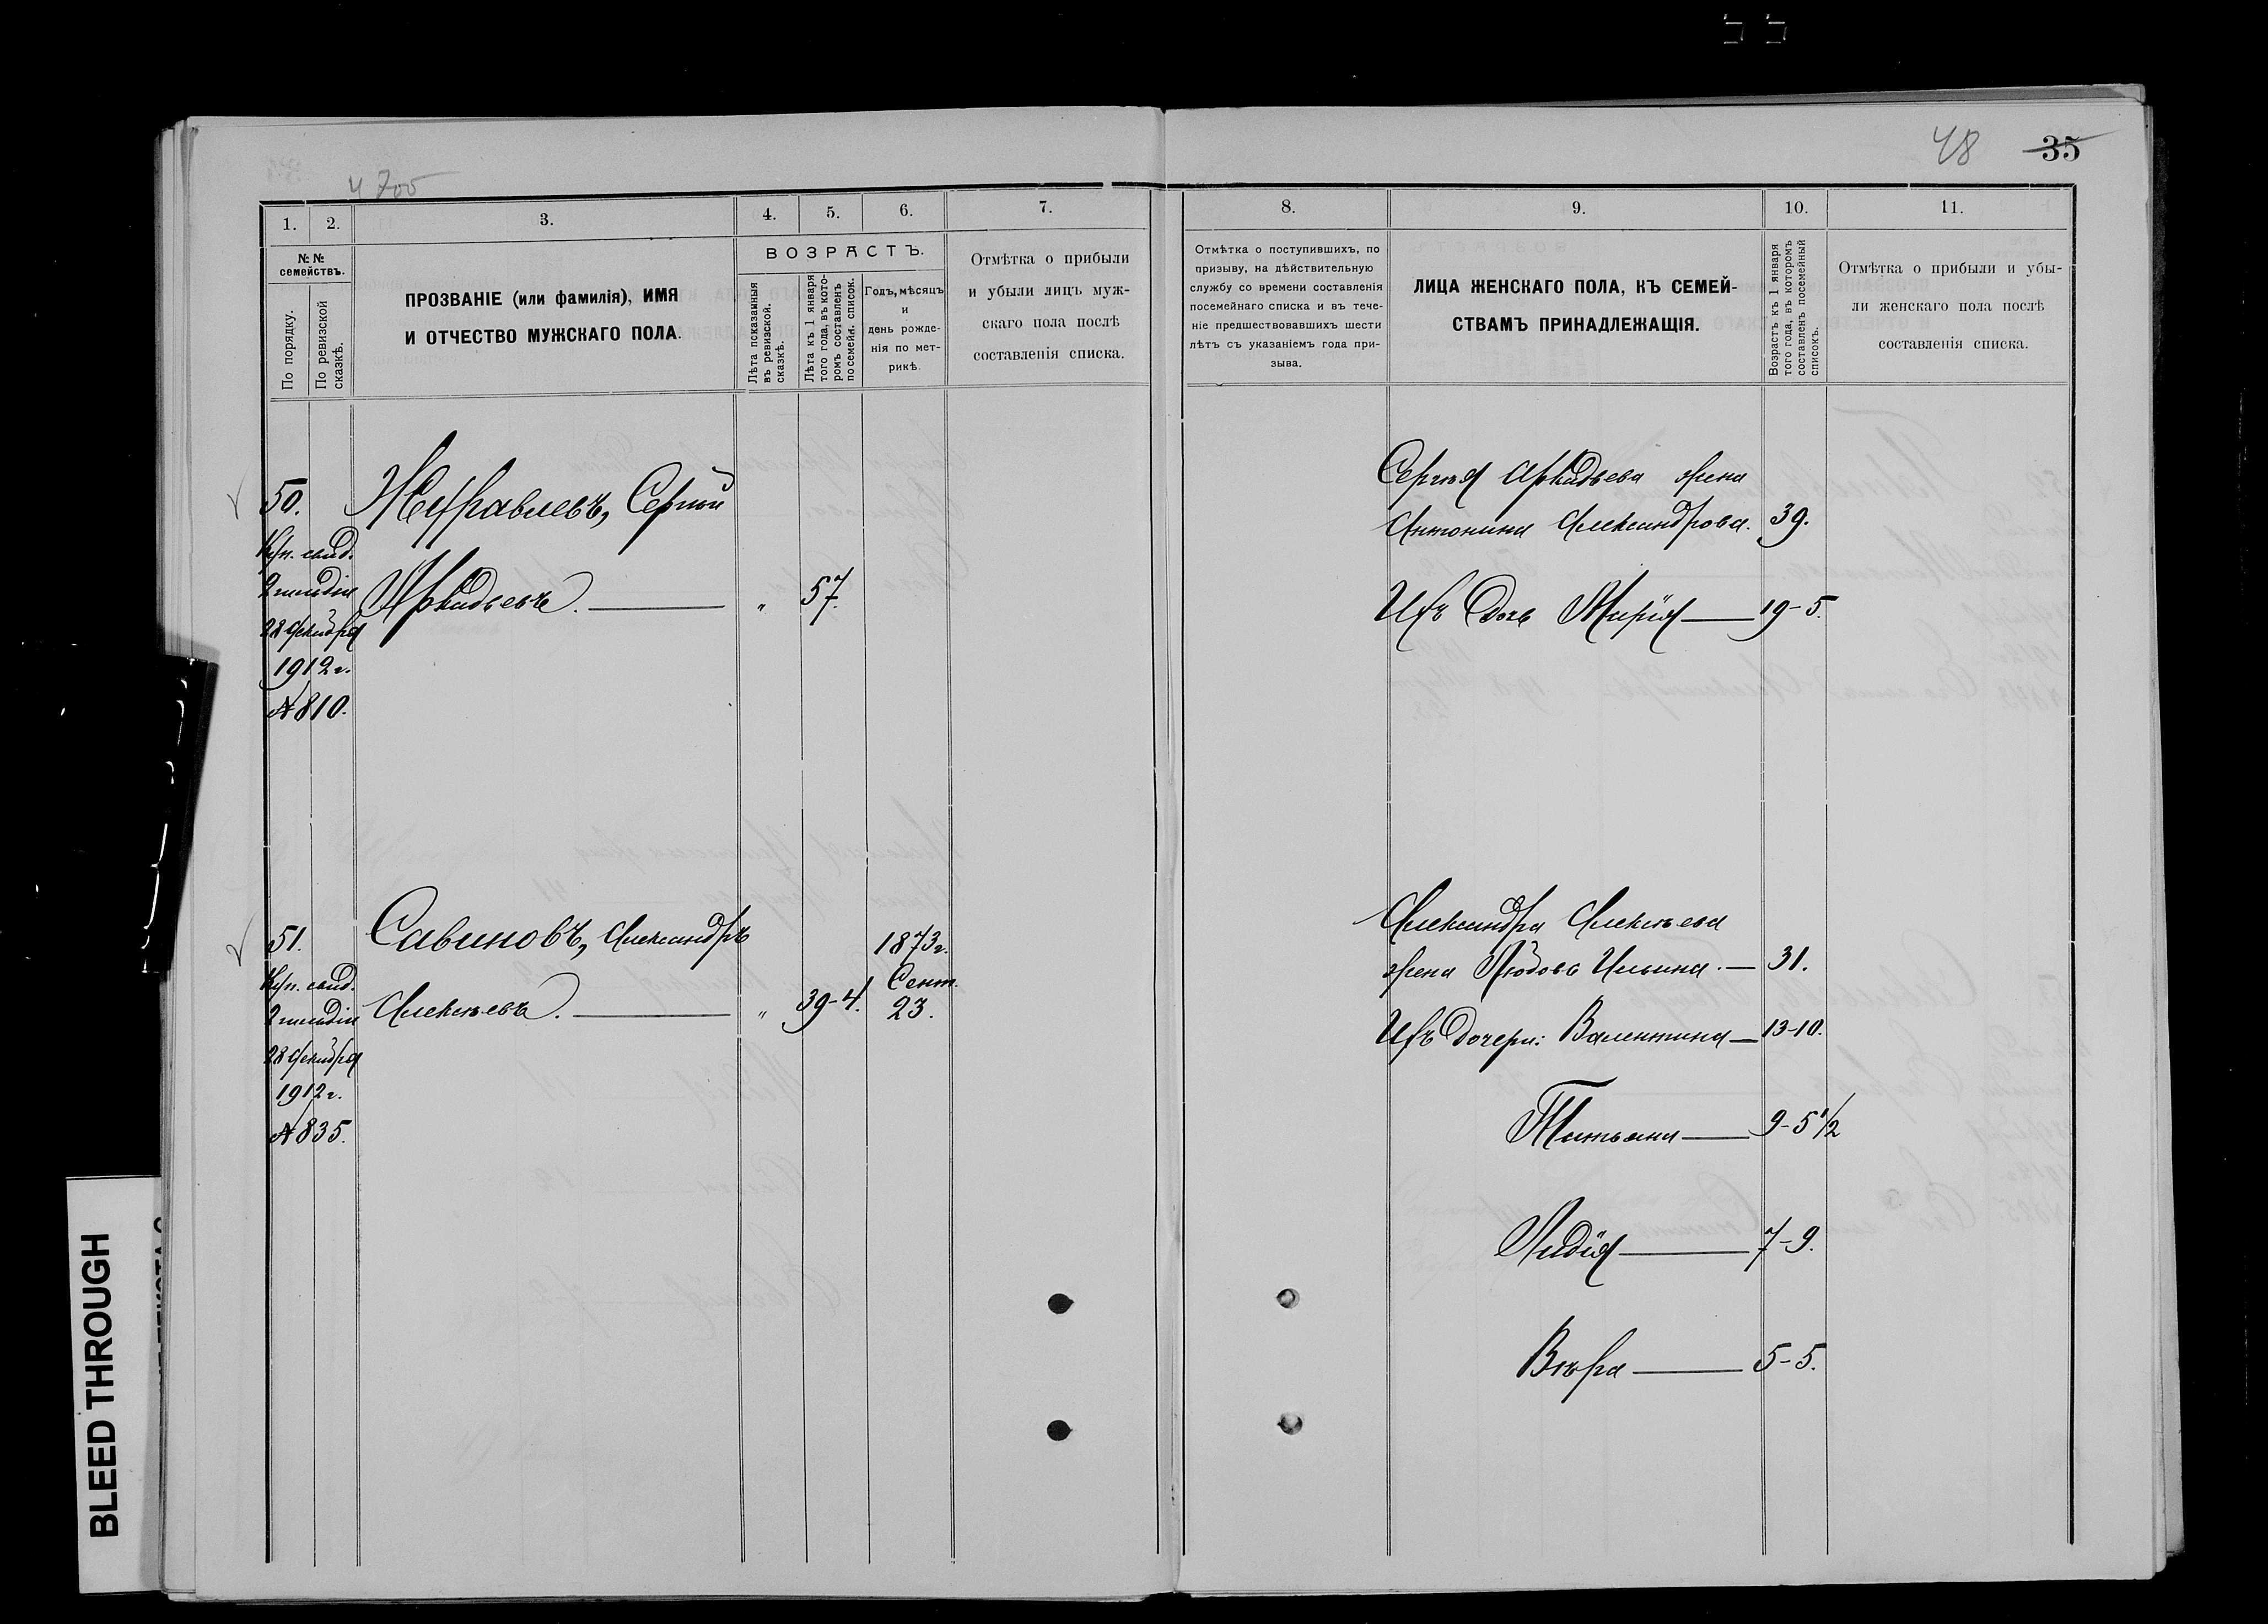 48 35
4 705
1. 2. 3. 4. 5. 6. 7.
№ № семействъ.
По порядку.
По ревизской сказкѣ.
ПРОЗВАНІЕ (или фамилія), ИМЯ
И ОТЧЕСТВО МУЖСКАГО ПОЛА.
ВОЗРАСТЪ.
Лѣта показанныя
въ ревизской.
сказкѣ.
Лѣта къ 1 января
того года, въ кото-
ромъ составленъ
посемейн. список.
Годъ, мѣсяцъ
и
день рожде-
нія по мет-
рикѣ.
Отмѣтка о прибыли
и убыли лицъ муж-
скаго пола послѣ
составленія списка.
50. Журавлевъ, Сергѣй
Куп. свид.
2 гильдіи Аркадьевъ. — " 57.
28 декабря
1912 г.
№ 810.
51. Савиновъ, Александръ 1873 г.
Куп. свид. Сент.
2 гильдіи Алексѣевъ. — " 39-4. 23.
28 декабря
1912 г.
№ 835.
8. 9. 10. 11.
Отмѣтка о поступившихъ, по
призыву, на дѣйствительную
службу со времени составленія
посемейнаго списка и въ тече-
ніе предшествовавшихъ шести
лѣтъ съ указаніемъ года при-
зыва.
ЛИЦА ЖЕНСКАГО ПОЛА, КЪ СЕМЕЙ-
СТВАМЪ ПРИНАДЛЕЖАЩІЯ.
Возрастъ къ 1 января
того года, въ которомъ
составленъ посемейный
списокъ.
Отмѣтка о прибыли и убы-
ли женскаго пола послѣ
составленія списка.
Сергѣя Аркадьева жена
Антонина Александрова. 39.
Ихъ дочь Марія — 19-5.
Александра Алексѣева
жена Любовь Ильина. — 31.
Ихъ дочери: Валентина — 13-10.
Татьяна — 9-5 1/2
Лидія — 7-9.
Вѣра — 5-5.
BLEED THROUGH